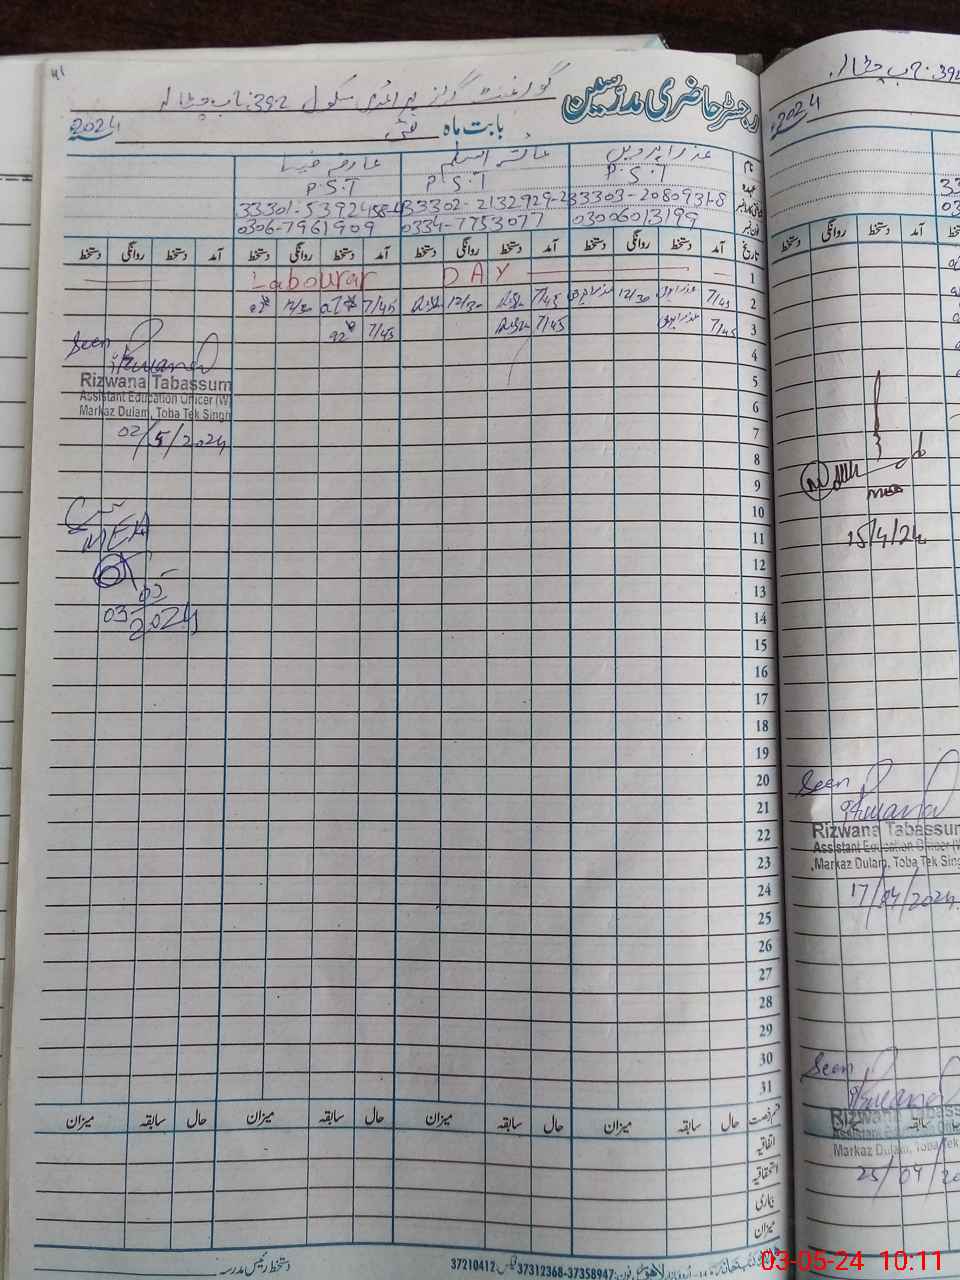 رجسٹر حاضری مدرسین
گورنمنٹ گرلز پرائمری سکول 392 ج ب
بابت ماہ مئی 2024
نام عذرا پروین عائشہ اسلم
عہدہ P.S.T P.S.T P.S.T
33303-2080931-8 33302-2132929-2 33301-5392458-4
03006013199 0334-7753077 0306-7961909
تاریخ آمد دستخط روانگی دستخط آمد دستخط روانگی دستخط آمد دستخط روانگی دستخط آمد دستخط روانگی دستخط
1 Labourar DAY
2 7/45 12/30 7/45 12/30 7/45 12/30
3 7/45 7/45 7/45
4
5
6
7
8
9
10
11
12
13
14
15
16
17
18
19
20
21
22
23
24
25
26
27
28
29
30
31
Seen
Rizwana Tabassum
Assistant Education Officer (W)
Markaz Dulam, Toba Tek Singh
02/5/2024
MEA
03 05 2024
قسم رخصت حال سابقہ میزان حال سابقہ میزان حال سابقہ میزان حال سابقہ میزان
اتفاقیہ
استحقاقیہ
بیماری
میزان
دستخط رئیس مدرسہ
لاہور فون: 37358947-37312368 فیکس 37210412
2024
دستخط روانگی دستخط
MEA
15/4/24
Seen
Rizwana Tabassum
Assistant Education Officer (W
Markaz Dulam, Toba Tek Sing
17/04/2024
Seen
Rizwana Tabass
Markaz Dulam, Toba Tek
25/04/20
03-05-24 10:11